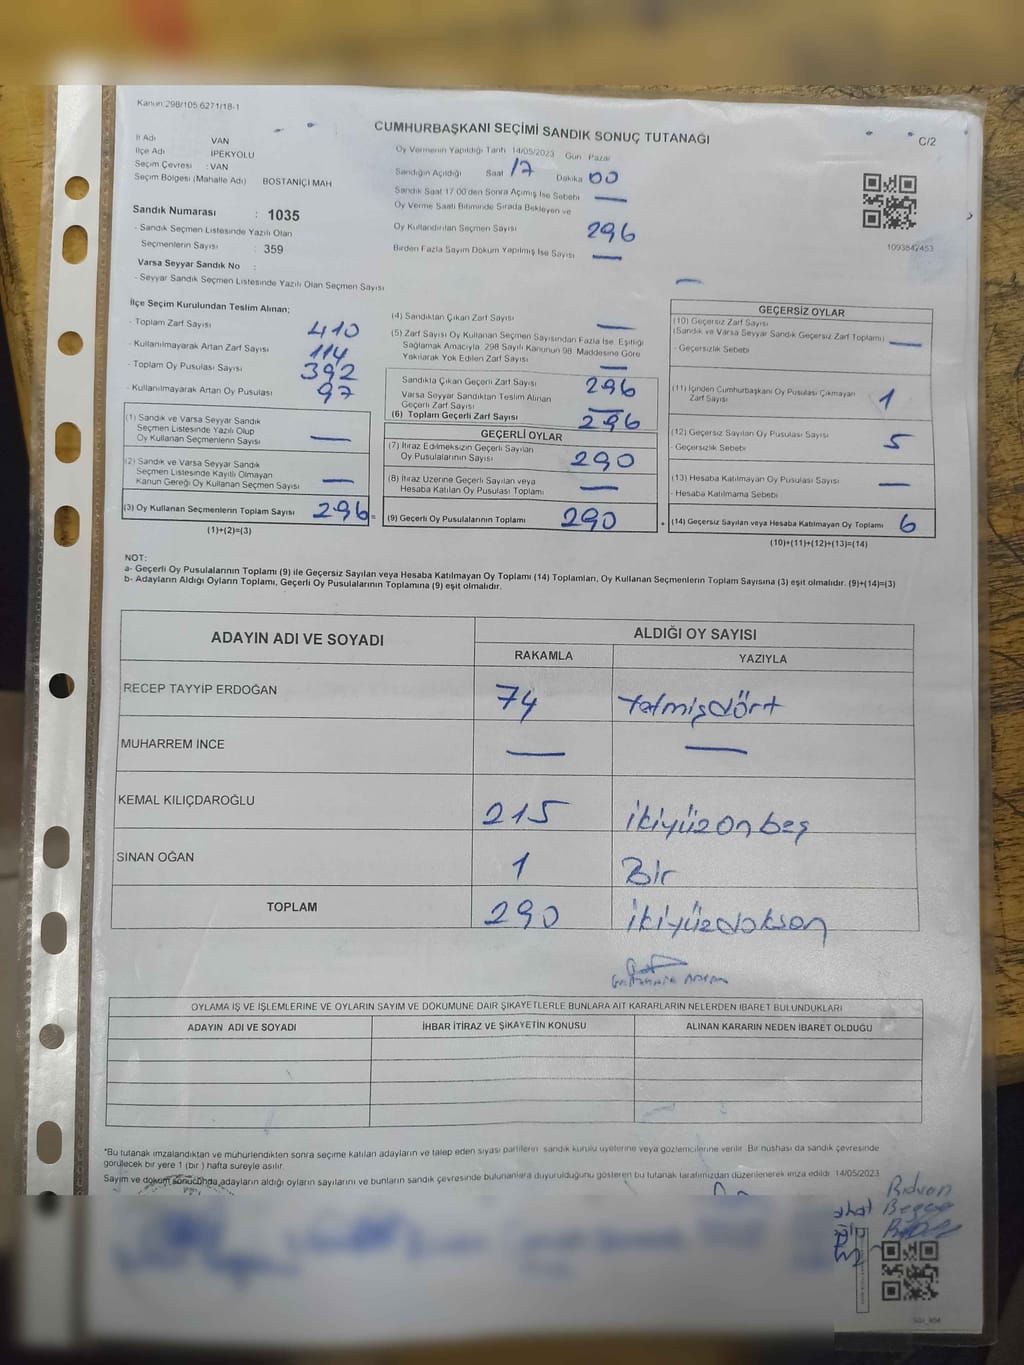 Kanun 298/105 6271/18-1
CUMHURBAŞKANI SEÇİMİ SANDIK SONUÇ TUTANAĞI
C/2
İl Adı VAN
İlçe Adı İPEKYOLU
Seçim Çevresi : VAN
Seçim Bölgesi (Mahalle Adı) BOSTANİÇİ MAH
Oy Vermenin Yapıldığı Tarih 14/05/2023 Gün Pazar
Sandığın Açıldığı Saat 17 Dakika 00
Sandık Saat 17.00'den Sonra Açımış İse Sebebi —
Oy Verme Saati Bitiminde Sırada Bekleyen ve
Oy Kullandırılan Seçmen Sayısı 296
Birden Fazla Sayım Döküm Yapılmış İse Sayısı —
1093842453
Sandık Numarası : 1035
- Sandık Seçmen Listesinde Yazılı Olan
Seçmenlerin Sayısı : 359
Varsa Seyyar Sandık No :
- Seyyar Sandık Seçmen Listesinde Yazılı Olan Seçmen Sayısı
İlçe Seçim Kurulundan Teslim Alınan;
- Toplam Zarf Sayısı 410
- Kullanılmayarak Artan Zarf Sayısı 114
- Toplam Oy Pusulası Sayısı 392
- Kullanılmayarak Artan Oy Pusulası 97
(1) Sandık ve Varsa Seyyar Sandık
Seçmen Listesinde Yazılı Olup
Oy Kullanan Seçmenlerin Sayısı —
(2) Sandık ve Varsa Seyyar Sandık
Seçmen Listesinde Kayıtlı Olmayan
Kanun Gereği Oy Kullanan Seçmen Sayısı —
(3) Oy Kullanan Seçmenlerin Toplam Sayısı 296 =
(1)+(2)=(3)
(4) Sandıktan Çıkan Zarf Sayısı —
(5) Zarf Sayısı Oy Kullanan Seçmen Sayısından Fazla İse, Eşitliği
Sağlamak Amacıyla, 298 Sayılı Kanunun 98. Maddesine Göre
Yakılarak Yok Edilen Zarf Sayısı —
Sandıkta Çıkan Geçerli Zarf Sayısı 296
Varsa Seyyar Sandıktan Teslim Alınan
Geçerli Zarf Sayısı —
(6) Toplam Geçerli Zarf Sayısı 296
GEÇERLİ OYLAR
(7) İtiraz Edilmeksizin Geçerli Sayılan
Oy Pusulalarının Sayısı 290
(8) İtiraz Üzerine Geçerli Sayılan veya
Hesaba Katılan Oy Pusulası Toplamı —
(9) Geçerli Oy Pusulalarının Toplamı 290 +
GEÇERSİZ OYLAR
(10) Geçersiz Zarf Sayısı
(Sandık ve Varsa Seyyar Sandık Geçersiz Zarf Toplamı) —
- Geçersizlik Sebebi
(11) İçinden Cumhurbaşkanı Oy Pusulası Çıkmayan
Zarf Sayısı 1
(12) Geçersiz Sayılan Oy Pusulası Sayısı 5
- Geçersizlik Sebebi
(13) Hesaba Katılmayan Oy Pusulası Sayısı —
- Hesaba Katılmama Sebebi
(14) Geçersiz Sayılan veya Hesaba Katılmayan Oy Toplamı 6
(10)+(11)+(12)+(13)=(14)
NOT:
a- Geçerli Oy Pusulalarının Toplamı (9) ile Geçersiz Sayılan veya Hesaba Katılmayan Oy Toplamı (14) Toplamları, Oy Kullanan Seçmenlerin Toplam Sayısına (3) eşit olmalıdır. (9)+(14)=(3)
b- Adayların Aldığı Oyların Toplamı, Geçerli Oy Pusulalarının Toplamına (9) eşit olmalıdır.
ADAYIN ADI VE SOYADI
ALDIĞI OY SAYISI
RAKAMLA YAZIYLA
RECEP TAYYİP ERDOĞAN 74 Yetmişdört
MUHARREM İNCE — —
KEMAL KILIÇDAROĞLU 215 ikiyüzonbeş
SİNAN OĞAN 1 Bir
TOPLAM 290 ikiyüzdokson
OYLAMA İŞ VE İŞLEMLERİNE VE OYLARIN SAYIM VE DÖKÜMÜNE DAİR ŞİKAYETLERLE BUNLARA AİT KARARLARIN NELERDEN İBARET BULUNDUKLARI
ADAYIN ADI VE SOYADI İHBAR İTİRAZ VE ŞİKAYETİN KONUSU ALINAN KARARIN NEDEN İBARET OLDUĞU
*Bu tutanak imzalandıktan ve mühürlendikten sonra seçime katılan adayların ve talep eden siyasi partilerin sandık kurulu üyelerine veya gözlemcilerine verilir. Bir nüshası da sandık çevresinde
görülecek bir yere 1 (bir ) hafta süreyle asılır.
Sayım ve döküm sonucunda, adayların aldığı oyların sayılarını ve bunların sandık çevresinde bulunanlara duyurulduğunu gösteren bu tutanak tarafımızdan düzenlenerek imza edildi. 14/05/2023
Rıdvan